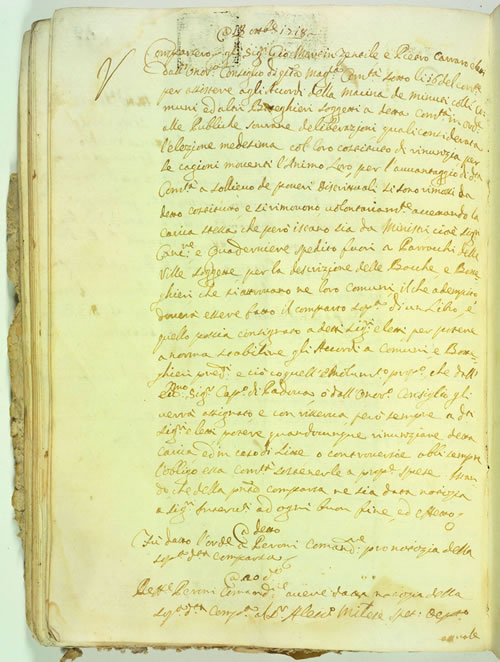 18 1718
Comparsero gli Sig.ri Gio: Maria Gentile e Pietro Carraro eletti
dall'Onor. Consiglio di q.ta Mag.ca Com.tà sotto li 16 del cor.te
per assistere agli Accordi della macina de minuti colli Co:
muni ed altri Boteghieri soggetti a detta Com.tà in ord.e
alle Publiche sovrane deliberazioni quali considerata
l'elezione medesima col loro costituto di rinunzia per
le cagioni moventi l'Animo Loro, per l'avvantaggio di d.ta
Com.tà a sollievo de poveri Distrituali si sono rimossi da
detto costituto e si rimovono volontariam.te accettando la
carica stessa che però siano sia da Ministri cioè Sig.ri
Canc.re e Quaderniere spedito fuori a Parrochi delle
Ville soggette per la descrizione delle Bocche e Bote
ghieri che si attrovano ne loro comuni, il che adempito
doverà essere fatto il comparto sop.a di un Libro, e
quello poscia consignato a detti Sig.ri eletti, per potere
a norma stabilire gli Accordi a Comuni e Bote
ghieri pred.i e ciò coquell' che dall'
Sig.r Cap.o di Padova o dall'Onor. Consiglio gli
verrà assignato e con riserva però sempre a d.ti
Sig.ri eletti potere quandocunque rinunziare detta
carica ed in caso di Lite o controversie obli sempre
l'obligo essa Com.tà sostenerle a prop.e spese
che della p.nte comparsa ne sia data notizia
a Sig.ri ad ogni buon fine, ed effetto
detto
Fu dato l'ord.e a Peroni Comand.r per notizia della
sop.ta comparsa
20 d.o
Peroni Comand.r avere data notizia della
sop.ta Comp.sa al S.r Aless.o Milese